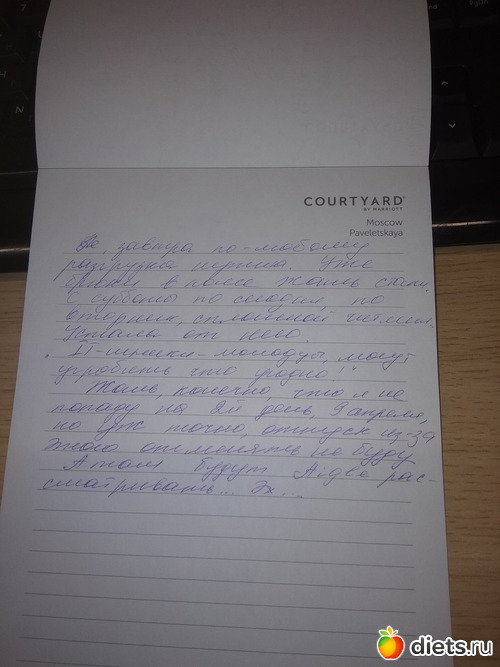 COURTYARD®
BY MARRIOTT
Moscow
Paveletskaya
завтра по-любому
разгрузка нужна. Уже
брюки в поясе жать стали.
С субботы по сегодня, по
вторник, сплошной читмил.
Устала от него.
"IT-шники - молодцы, могут
угробить что угодно!"
Жаль, конечно, что я не
попаду на день, 9 апреля,
но уж точно, отпуск из-за
этого отменять не буду
А там будут рас-
сматривать... Эх...
diets.ru